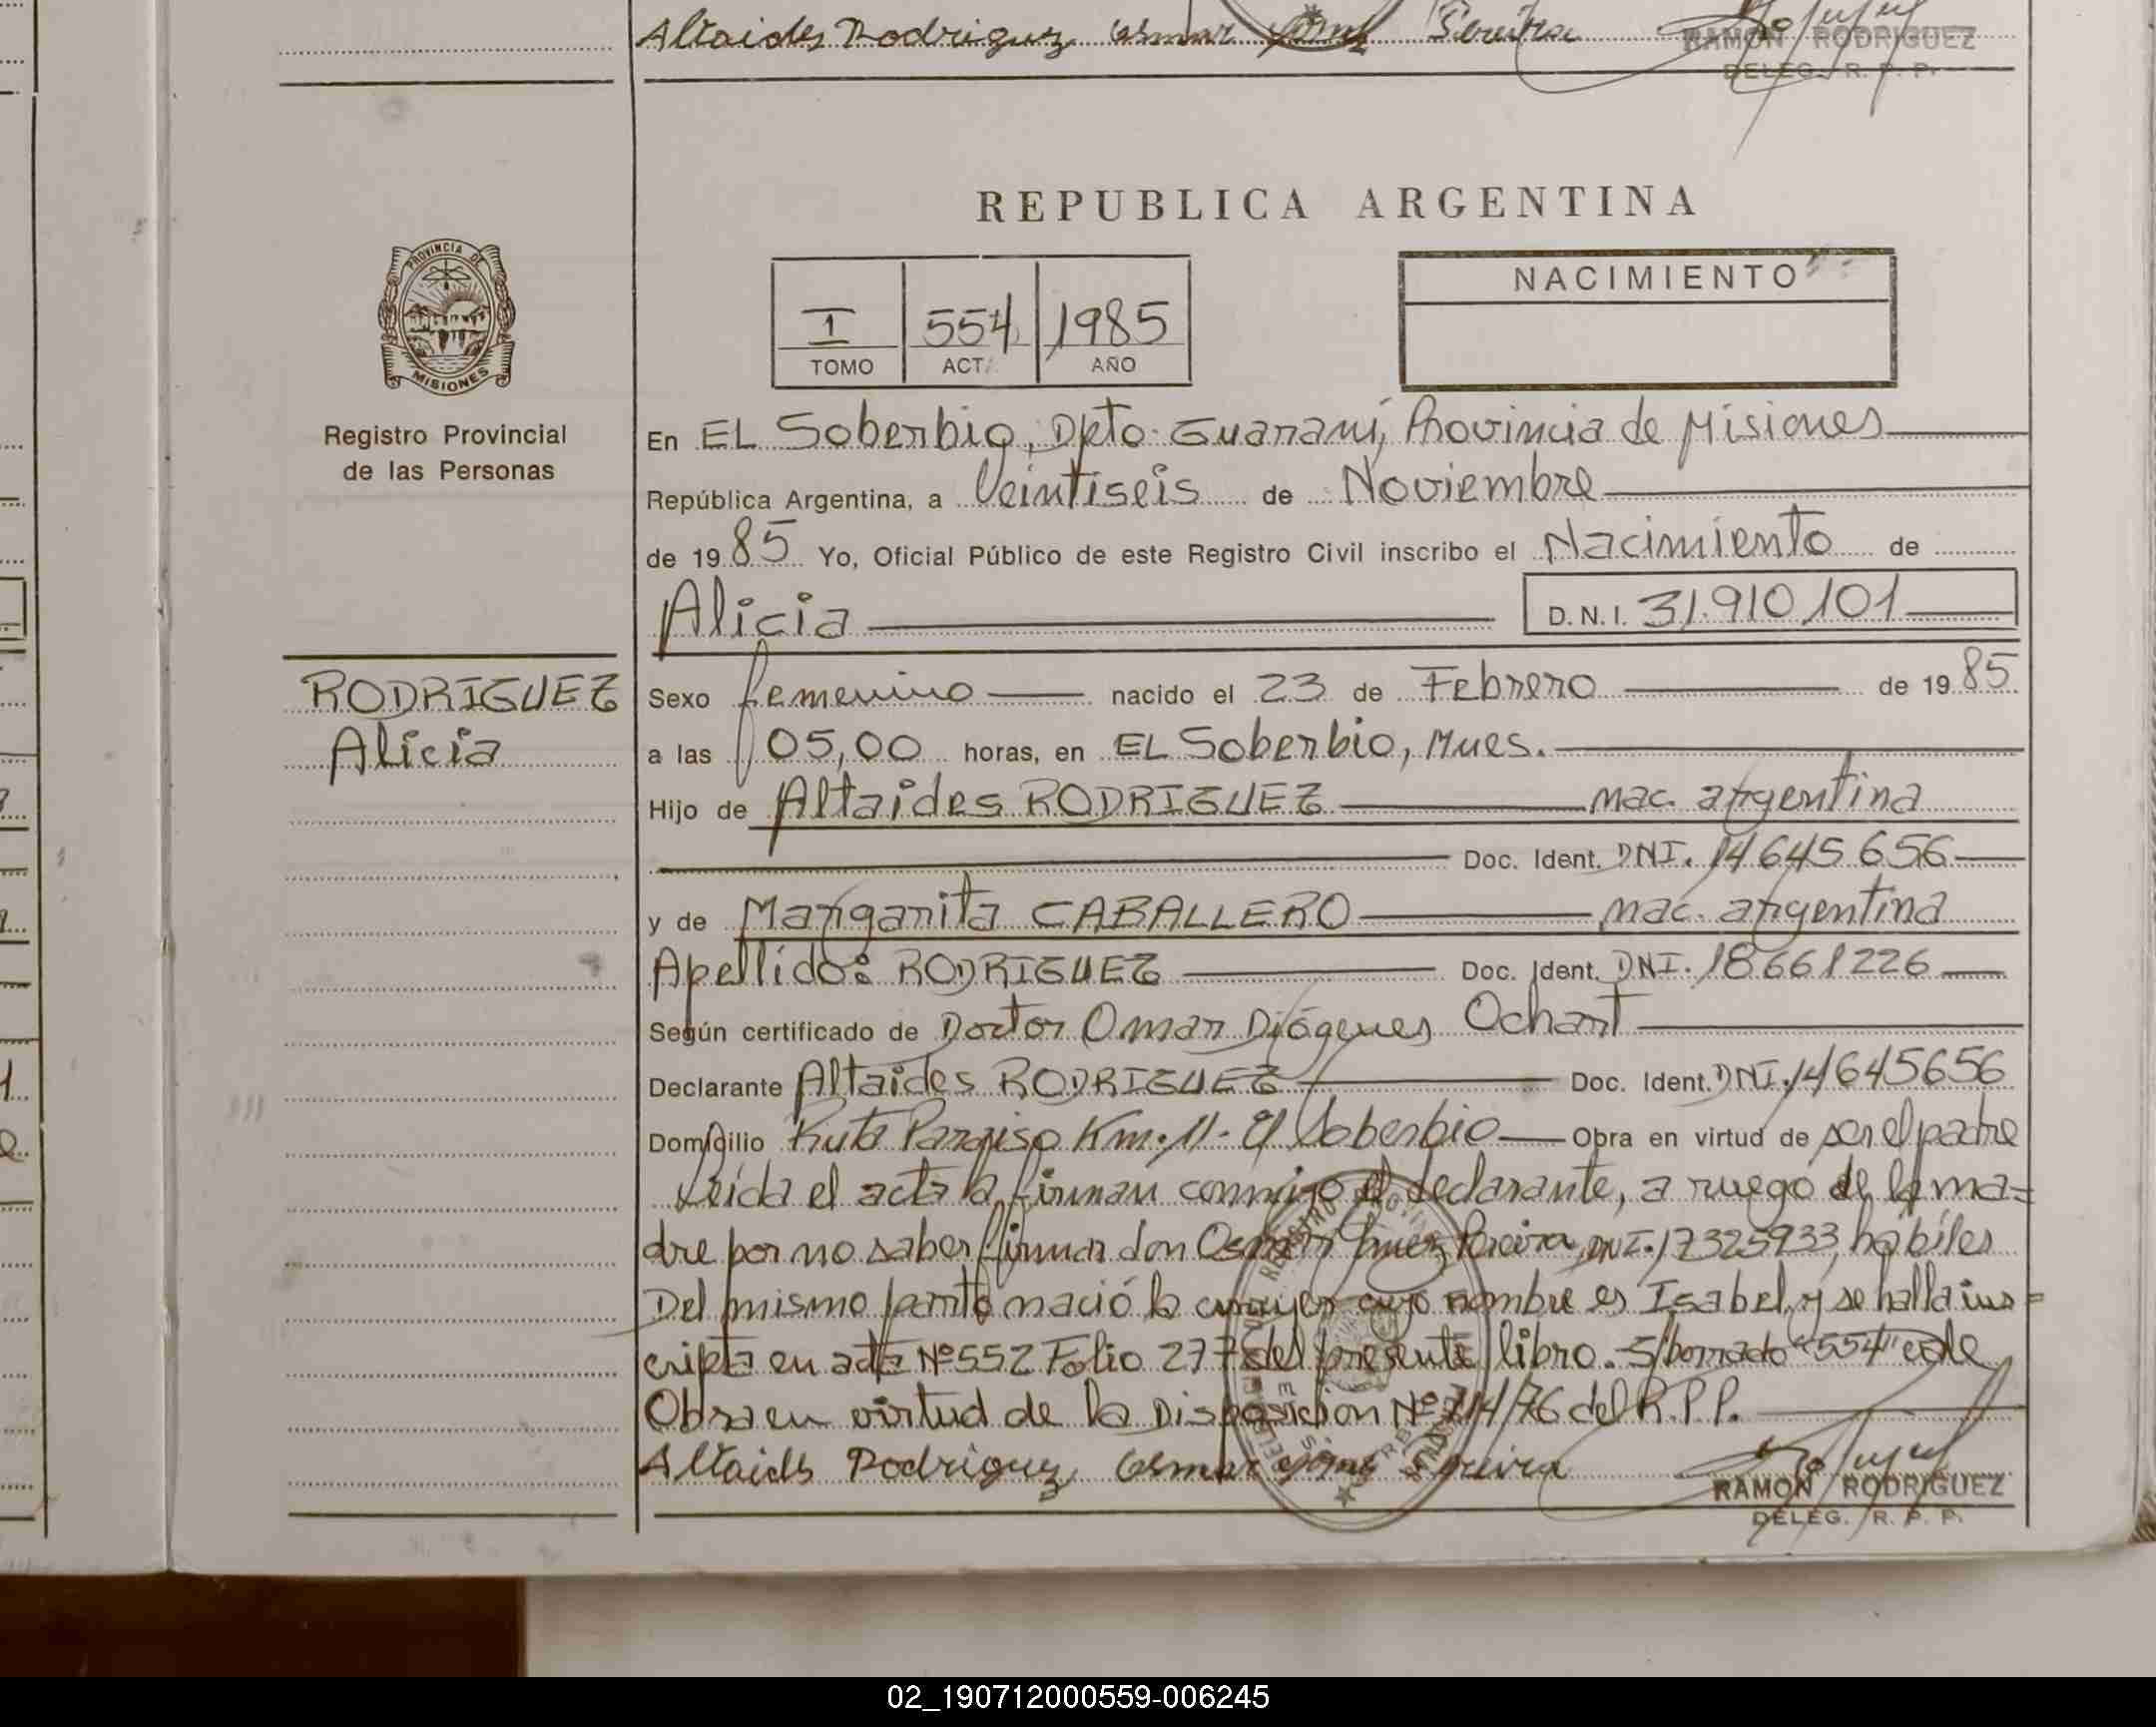 Altaides Rodriguez Osmar
RAMON RODRIGUEZ
DELEG. R. P. P.
REPUBLICA ARGENTINA
PROVINCIA DE
MISIONES
Registro Provincial
de las Personas
I 554 1985
TOMO ACT. AÑO
NACIMIENTO
En EL Soberbio, Dpto. Guaraní, Provincia de Misiones
República Argentina, a Veintiseis de Noviembre
de 1985 Yo, Oficial Público de este Registro Civil inscribo el Nacimiento de
Alicia D.N.I. 31.910.101
RODRIGUEZ
Alicia
Sexo femenino nacido el 23 de Febrero de 1985
a las 05,00 horas, en EL Soberbio, Mnes.
Hijo de Altaides RODRIGUEZ nac. argentina
Doc. Ident. DNI. 14645656
y de Margarita CABALLERO nac. argentina
Apellido: RODRIGUEZ Doc. Ident. DNI. 18661226
Según certificado de Doctor Omar Diógenes Ochart
Declarante Altaides RODRIGUEZ Doc. Ident. DNI. 14645656
Domicilio Ruta Paraiso Km. 11 - El Soberbio Obra en virtud de ser el padre
Leida el acta la firman conmigo el declarante, a ruego de la ma=
dre por no saber firmar don Osmar Pereira, DNI. 17325933, hábiles
Del mismo parto nació la mujer cuyo nombre es Isabel, y se halla ins=
cripta en acta Nº 552 Folio 277 del presente libro. S/borrado "554" vale
Obra en virtud de la Disposicion Nº 214/76 del R.P.P.
Altaides Rodriguez Osmar Pereira
RAMON RODRIGUEZ
DELEG. R. P. P.
02_190712000559-006245